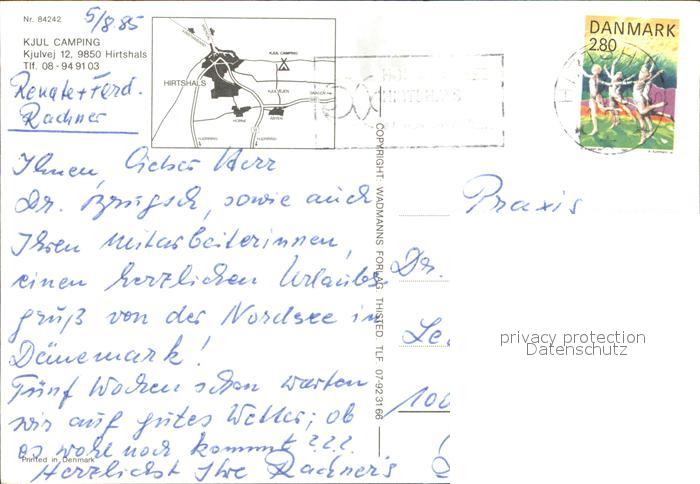 Nr. 84242
5/8.85
KJUL CAMPING
Kjulvej 12, 9850 Hirtshals
Tlf. 08 - 94 91 03
Renate + Ferd.
Rachner
KJUL CAMPING
HIRTSHALS
KJULVEJEN
HORNE
ASTEN
HJØRRING
HJØRRING
DANMARK
2.80
Ihnen, lieber Herr
Dr. Brugsch, sowie auch
Ihren Mitarbeiterinnen,
einen herzlichen Urlaubs
gruß von der Nordsee in
Dänemark!
Fünf Wochen schon warten
wir auf gutes Wetter; ob
es wohl noch kommt???
Herzlichst Ihre Rachner's
Printed in Denmark
COPYRIGHT: WADMANNS FORLAG THISTED. TLF. 07-92 31 66
Praxis
Dr.
Le
100
privacy protection
Datenschutz